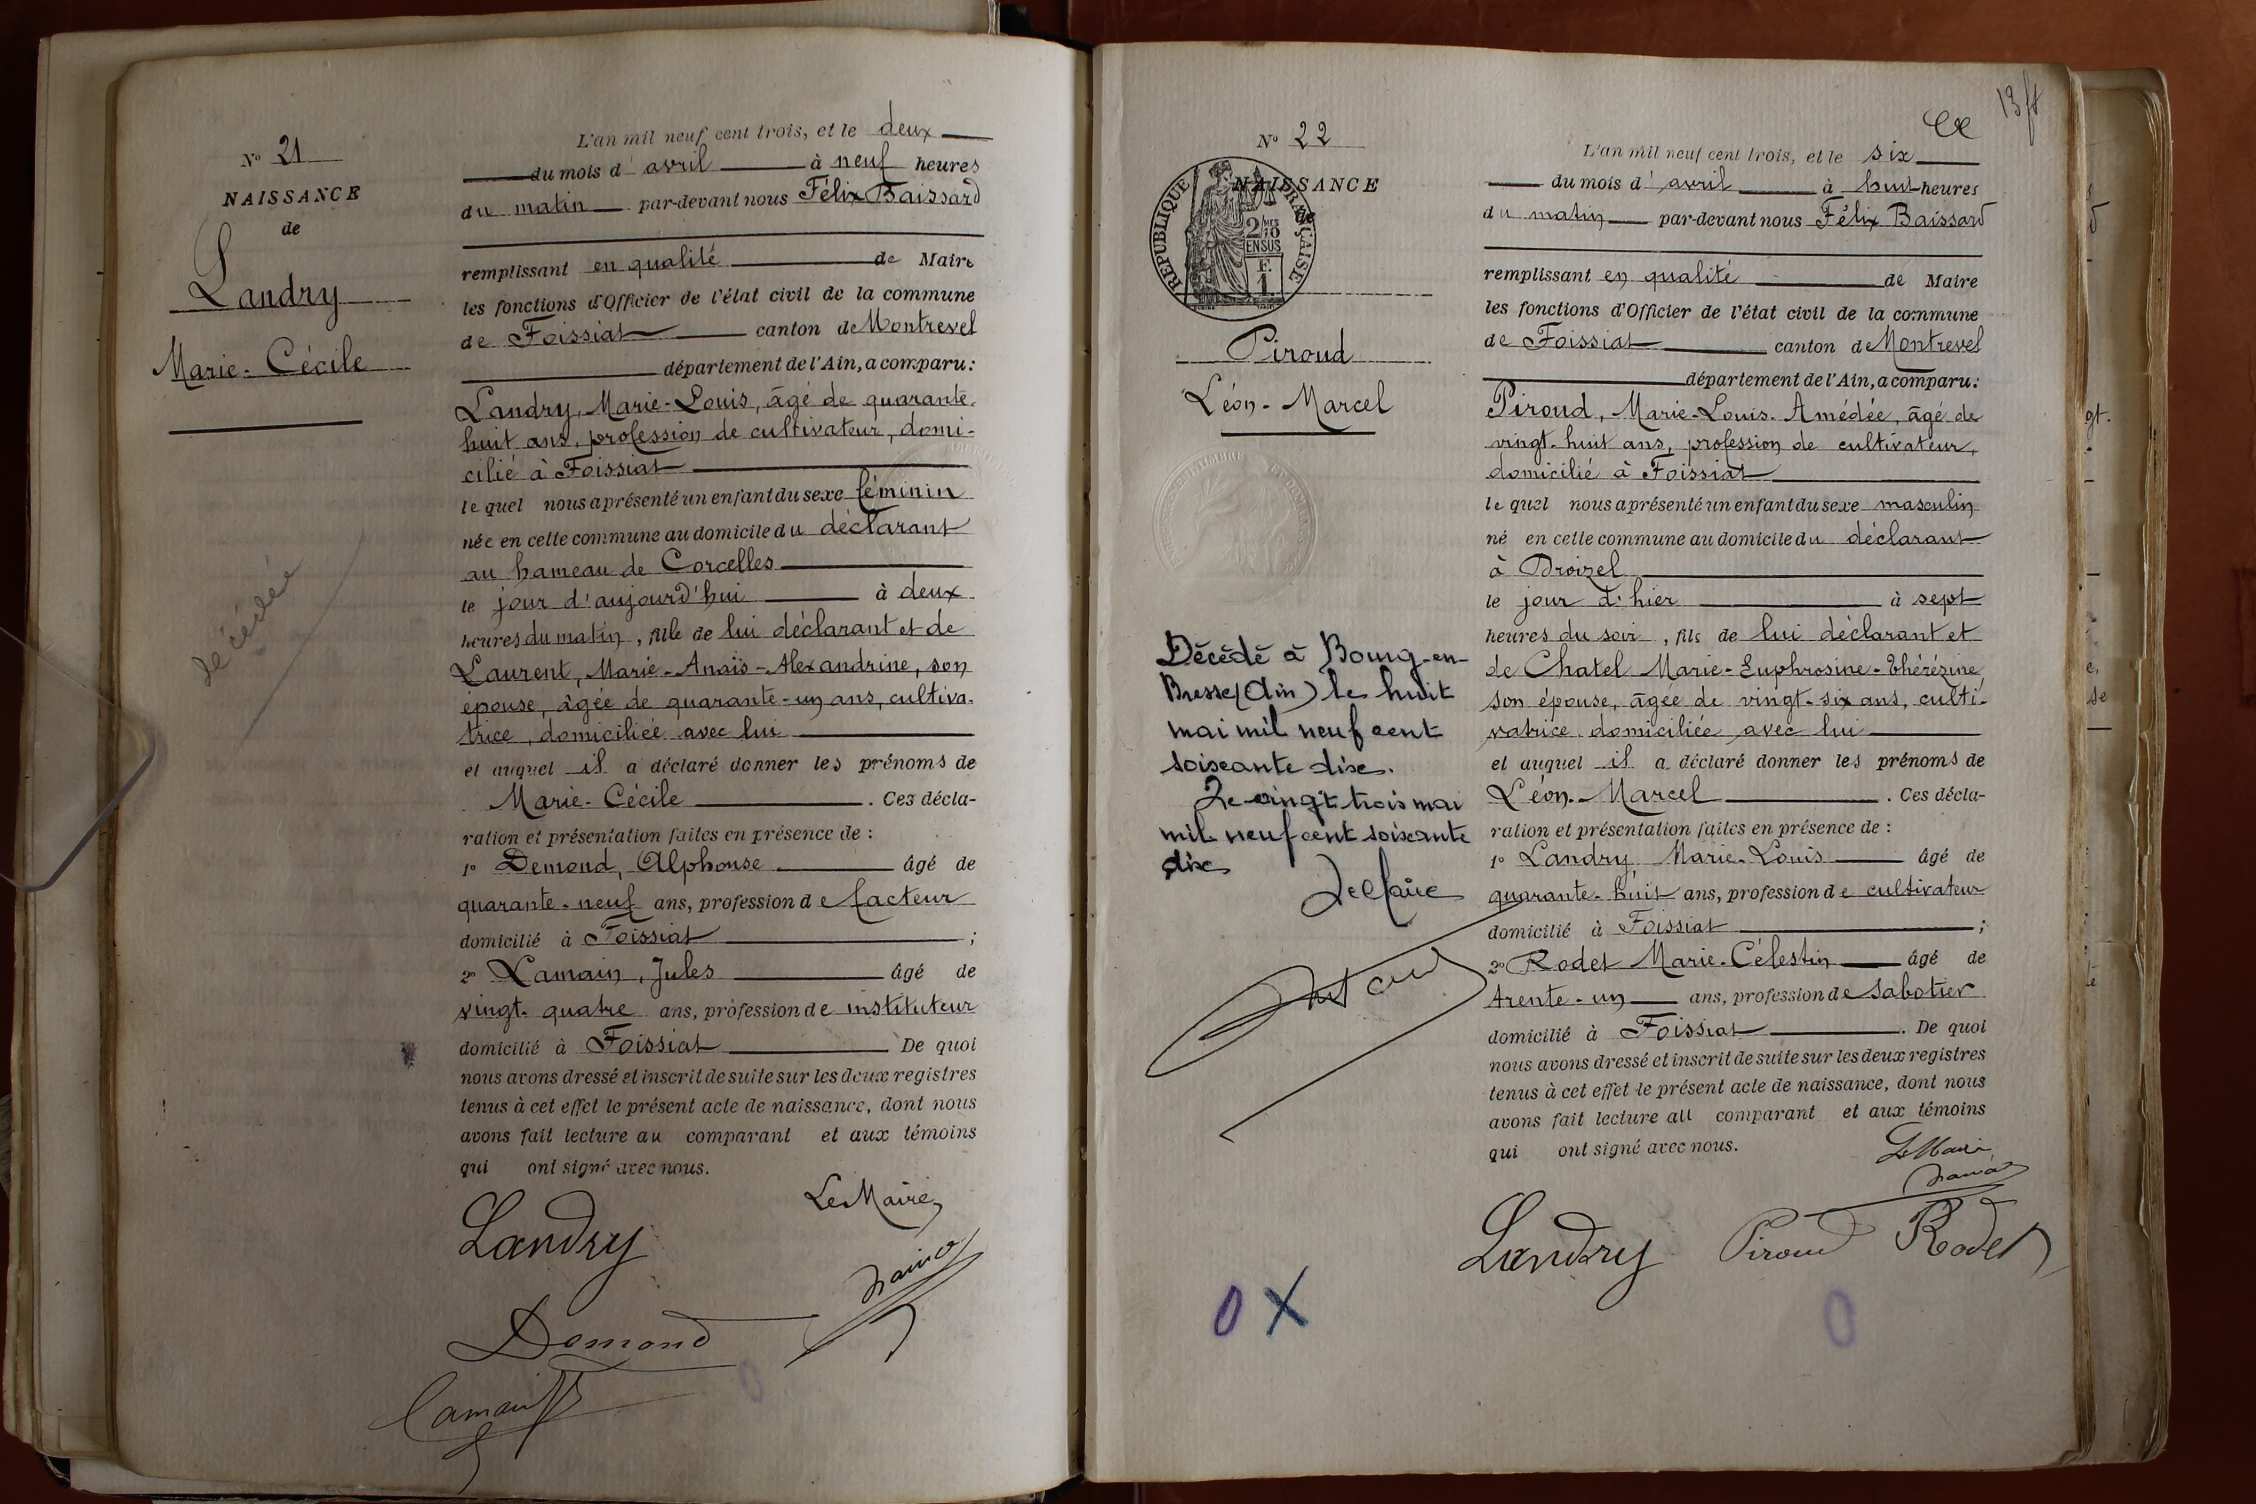 N° 21
NAISSANCE
de
Landry
Marie-Cécile
décédée
L'an mil neuf cent trois, et le deux
du mois d'avril à neuf heures
du matin par-devant nous Félix Baissard
remplissant en qualité de Maire
les fonctions d'Officier de l'état civil de la commune
de Foissiat canton de Montrevel
département de l'Ain, a comparu:
Landry, Marie-Louis, âgé de quarante-
huit ans, profession de cultivateur, domi-
cilié à Foissiat
le quel nous a présenté un enfant du sexe féminin
née en cette commune au domicile du déclarant
au hameau de Corcelles
le jour d'aujourd'hui à deux
heures du matin, fille de lui déclarant et de
Laurent, Marie-Anaïs-Alexandrine, son
épouse, âgée de quarante-un ans, cultiva-
trice, domiciliée avec lui
et auquel il a déclaré donner les prénoms de
Marie-Cécile. Ces décla-
ration et présentation faites en présence de :
1° Demond, Alphonse âgé de
quarante-neuf ans, profession de facteur
domicilié à Foissiat ;
2° Lamain, Jules âgé de
vingt-quatre ans, profession de instituteur
domicilié à Foissiat De quoi
nous avons dressé et inscrit de suite sur les deux registres
tenus à cet effet le présent acte de naissance, dont nous
avons fait lecture au comparant et aux témoins
qui ont signé avec nous.
Le Maire
Landry
Demond
Lamain
13 ft
N° 22
NAISSANCE
de
RÉPUBLIQUE FRANÇAISE
2/10
EN SUS
F.
1
Piroud
Léon-Marcel
Décédé à Bourg-en-
Bresse (Ain) le huit
mai mil neuf cent
soixante dix.
Le vingt trois mai
mil neuf cent soixante
dix
L'an mil neuf cent trois, et le six
du mois d'avril à huit heures
du matin par-devant nous Félix Baissard
remplissant en qualité de Maire
les fonctions d'Officier de l'état civil de la commune
de Foissiat canton de Montrevel
département de l'Ain, a comparu:
Piroud, Marie-Louis-Amédée, âgé de
vingt-huit ans, profession de cultivateur,
domicilié à Foissiat
le quel nous a présenté un enfant du sexe masculin
né en cette commune au domicile du déclarant
à Droizel
le jour d'hier à sept
heures du soir, fils de lui déclarant et
de Chatel Marie-Euphrosine-Thérézine
son épouse, âgée de vingt-six ans, culti-
vatrice domiciliée avec lui
et auquel il a déclaré donner les prénoms de
Léon-Marcel. Ces décla-
ration et présentation faites en présence de :
1° Landry Marie-Louis âgé de
quarante-huit ans, profession de cultivateur
domicilié à Foissiat ;
2° Rodet Marie-Célestin âgé de
trente-un ans, profession de sabotier
domicilié à Foissiat. De quoi
nous avons dressé et inscrit de suite sur les deux registres
tenus à cet effet le présent acte de naissance, dont nous
avons fait lecture au comparant et aux témoins
qui ont signé avec nous.
Le Maire
Landry Piroud Rodet
0 X
0